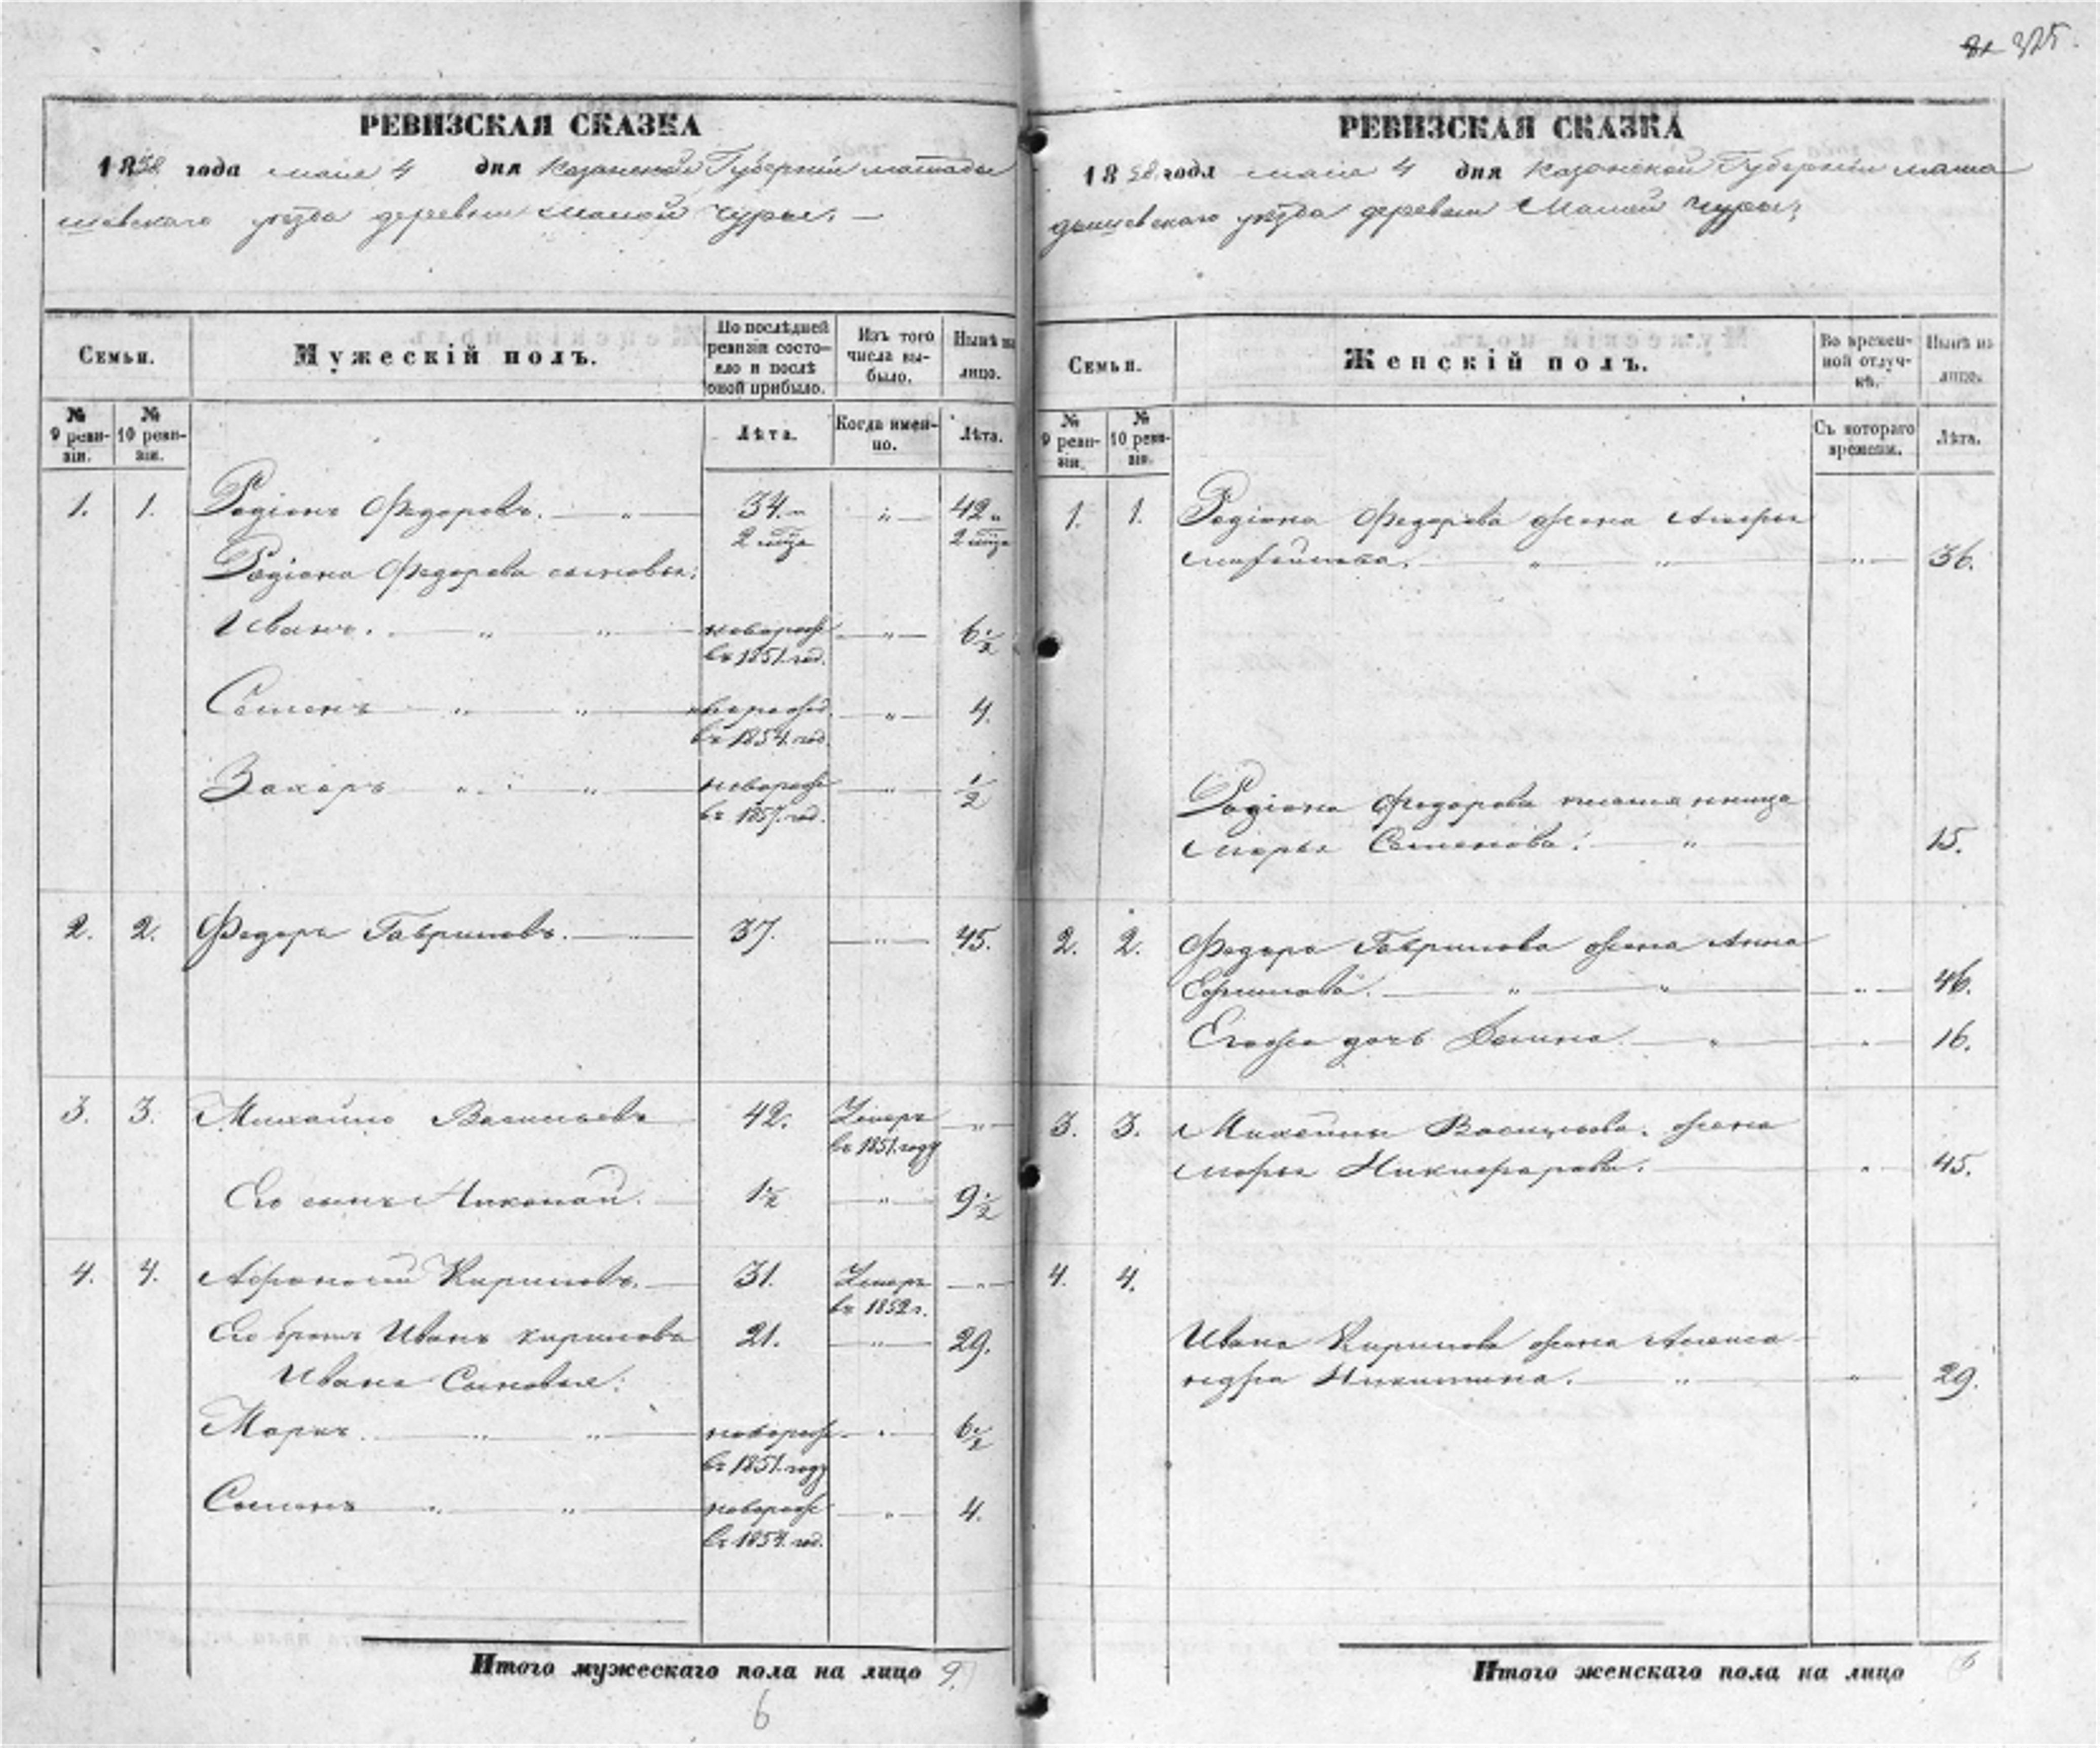 325.
РЕВИЗСКАЯ СКАЗКА
1858 года маія 4 дня Казанской Губерніи мамады
шевскаго уѣзда деревни Малой Чуры. —
Семьи.
Мужескій полъ.
По послѣдней ревизіи состояло и послѣ оной прибыло.
Изъ того числа выбыло.
Нынѣ на лицо.
№ 9 ревизіи.
№ 10 ревизіи.
Лѣта.
Когда именно.
Лѣта.
1. 1. Родіонъ Федоровъ. 34. " 42 "
2 мца 2 мца
Родіона Федорова сыновья:
Иванъ. новорож 6 1/2
въ 1851. год.
Семенъ новорожд. 4.
въ 1854. год.
Захаръ новорож 1/2
въ 1857. год.
2. 2. Федоръ Гавриловъ. 37. 45.
3. 3. Михайло Васильевъ 42. Умеръ
въ 1851. году
Его сынъ Николай. 1 1/2 9 1/2
4. 4. Афонасей Кириловъ. 31. Умеръ
въ 1852 г.
Его братъ Иванъ Кириловъ 21. 29.
Ивана Сыновья:
Маркъ. новорож 6 1/2
въ 1851. году
Семенъ новорож 4.
въ 1854. год.
Итого мужескаго пола на лицо 9.
6
РЕВИЗСКАЯ СКАЗКА
1858. года маія 4 дня Казанской Губерніи мама
дышевскаго уѣзда деревни Малой Чуры;
Семьи.
Женскій полъ.
Во временной отлучкѣ.
Нынѣ на лицо.
№ 9 ревизіи.
№ 10 ревизіи.
Съ котораго времени.
Лѣта.
1. 1. Родіона Федорова жена
36.
Родіона Федорова племянница
Марья Семенова. 15.
2. 2. Федора Гаврилова жена Анна
Ефимова. 46.
Его же дочь 16.
3. 3. Михайлы Васильева. жена
Марья Никифорова. 45.
4. 4.
Ивана Кирилова жена Алекса
ндра Никитина. 29.
Итого женскаго пола на лицо 6